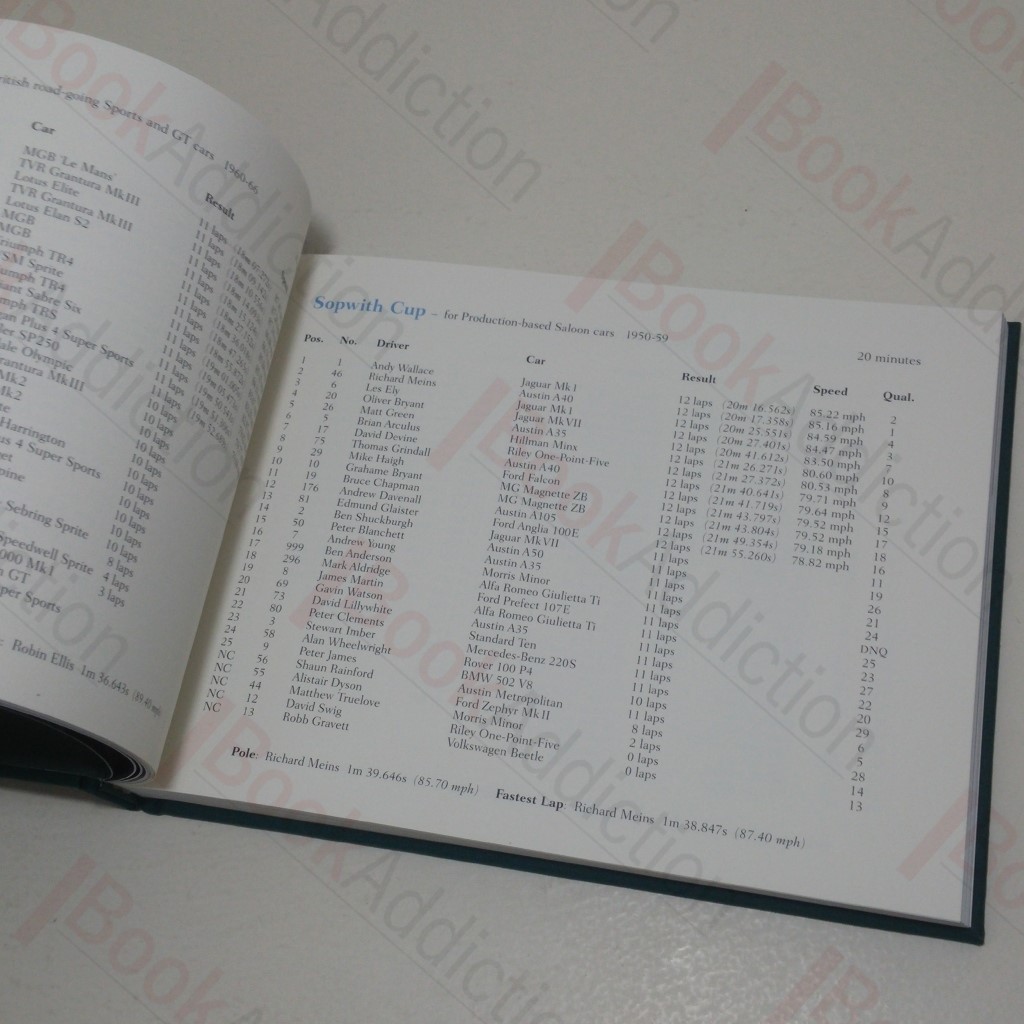 British road-going Sports and GT cars 1960-66
Car Result
MGB 'Le Mans' 11 laps
TVR Grantura MkIII 11 laps
Lotus Elite 11 laps
TVR Grantura MkIII 11 laps
Lotus Elan S2 11 laps
MGB 11 laps
MGB 11 laps
Triumph TR4 11 laps
Sprite
Triumph TR4
Sabre Six
TRS
Plus 4 Super Sports
SP250
Olympic
Grantura MkIII
Mk2
Mk2
Harrington
Plus 4 Super Sports
Sebring Sprite
Speedwell Sprite 4 laps
1000 Mk1 3 laps
GT
Super Sports
Robin Ellis 1m 36.643s (89.40 mph)
Sopwith Cup – for Production-based Saloon cars 1950-59 20 minutes
Pos. No. Driver Car Result Speed Qual.
1 1 Andy Wallace Jaguar Mk1 12 laps (20m 16.562s) 85.22 mph 2
2 46 Richard Meins Austin A40 12 laps (20m 17.358s) 85.16 mph 1
3 6 Les Ely Jaguar Mk1 12 laps (20m 25.551s) 84.59 mph 4
4 20 Oliver Bryant Jaguar MkVII 12 laps (20m 27.401s) 84.47 mph 3
5 26 Matt Green Austin A35 12 laps (20m 41.612s) 83.50 mph 7
6 5 Brian Arculus Hillman Minx 12 laps (21m 26.271s) 80.60 mph 10
7 17 David Devine Riley One-Point-Five 12 laps (21m 27.372s) 80.53 mph 8
8 75 Thomas Grindall Austin A40 12 laps (21m 40.641s) 79.71 mph 9
9 29 Mike Haigh Ford Falcon 12 laps (21m 41.719s) 79.64 mph 12
10 10 Grahame Bryant MG Magnette ZB 12 laps (21m 43.797s) 79.52 mph 15
11 19 Bruce Chapman MG Magnette ZB 12 laps (21m 43.804s) 79.52 mph 17
12 176 Andrew Davenall Austin A105 12 laps (21m 49.354s) 79.18 mph 18
13 81 Edmund Glaister Ford Anglia 100E 12 laps (21m 55.260s) 78.82 mph 16
14 2 Ben Shuckburgh Jaguar MkVII 11 laps 11
15 50 Peter Blanchett Austin A50 11 laps 19
16 7 Andrew Young Austin A35 11 laps 26
17 999 Ben Anderson Morris Minor 11 laps 21
18 296 Mark Aldridge Alfa Romeo Giulietta Ti 11 laps 24
19 8 James Martin Ford Prefect 107E 11 laps DNQ
20 69 Gavin Watson Alfa Romeo Giulietta Ti 11 laps 25
21 73 David Lillywhite Austin A35 11 laps 23
22 80 Peter Clements Standard Ten 11 laps 27
23 3 Stewart Imber Mercedes-Benz 220S 11 laps 22
24 58 Alan Wheelwright Rover 100 P4 11 laps 20
25 9 Peter James BMW 502 V8 10 laps 29
NC 56 Shaun Rainford Austin Metropolitan 11 laps 6
NC 55 Alistair Dyson Ford Zephyr MkII 8 laps 5
NC 44 Matthew Truelove Morris Minor 2 laps 28
NC 12 David Swig Riley One-Point-Five 0 laps 14
NC 13 Robb Gravett Volkswagen Beetle 0 laps 13
Pole: Richard Meins 1m 39.646s (85.70 mph) Fastest Lap: Richard Meins 1m 38.847s (87.40 mph)